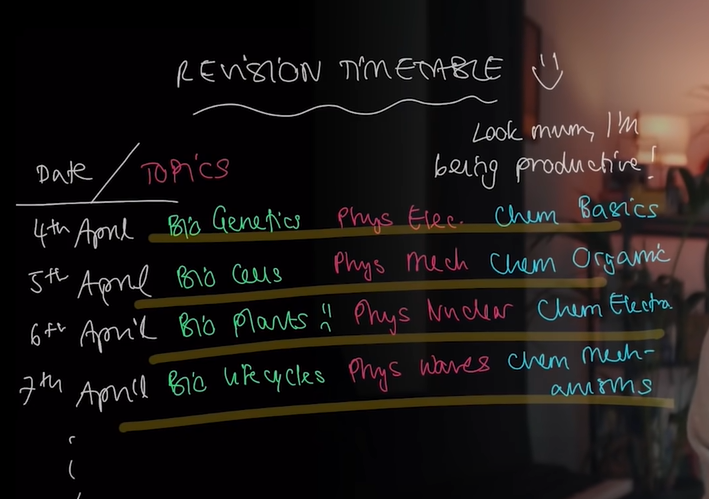 REVISION TIMETABLE
Look mum, I'm
being productive!
Date / TOPICS
4th April Bio Genetics Phys Elec. Chem Basics
5th April Bio Cells Phys Mech Chem Organic
6th April Bio Plants Phys Nuclear Chem Electra
7th April Bio Lifecycles Phys Waves Chem Mech-
anisms